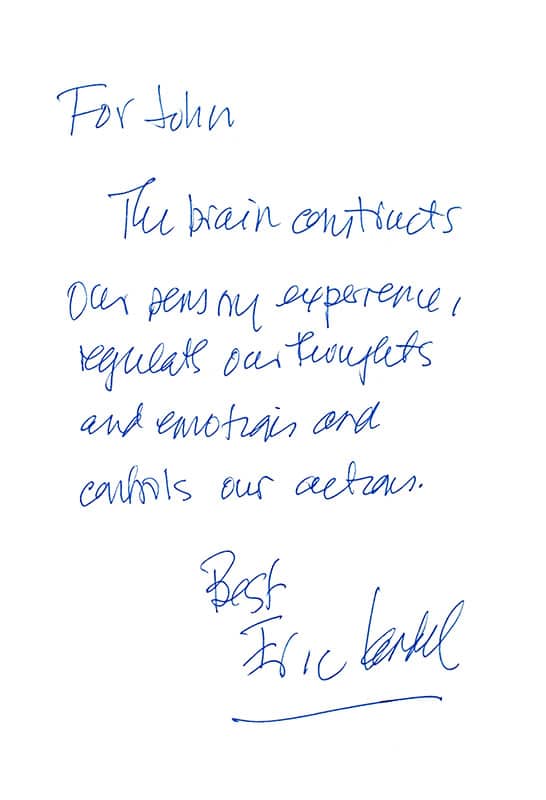 For John
The brain constructs
our sensory experience,
regulates our thoughts
and emotions and
controls our actions.
Best
Eric Kandel